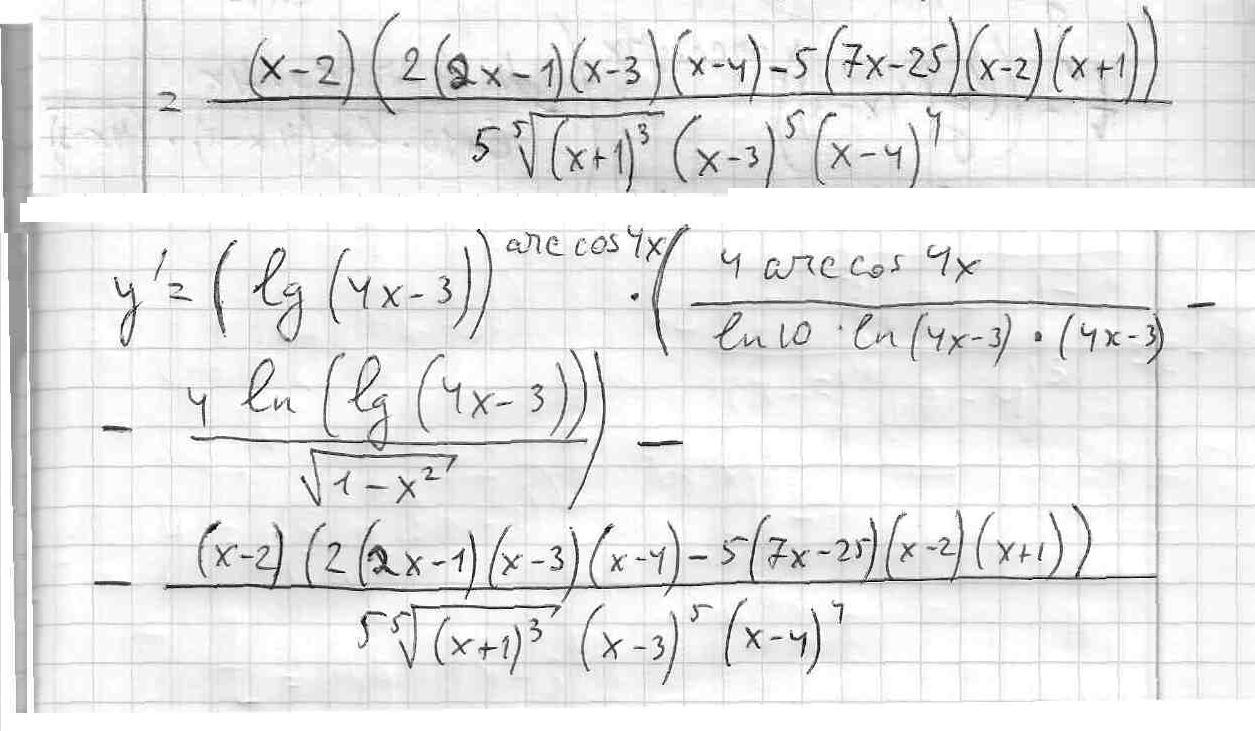 = (x-2)(2(2x-1)(x-3)(x-4)-5(7x-25)(x-2)(x+1)) / 5 ⁵√(x+1)³ (x-3)⁵ (x-4)⁴
y' = (lg(4x-3))^(arccos 4x) · ( 4 arccos 4x / ln10 · ln(4x-3) · (4x-3) -
- 4 ln(lg(4x-3)) / √(1-x²) ) -
- (x-2)(2(2x-1)(x-3)(x-4)-5(7x-25)(x-2)(x+1)) / 5 ⁵√(x+1)³ (x-3)⁵ (x-4)⁴